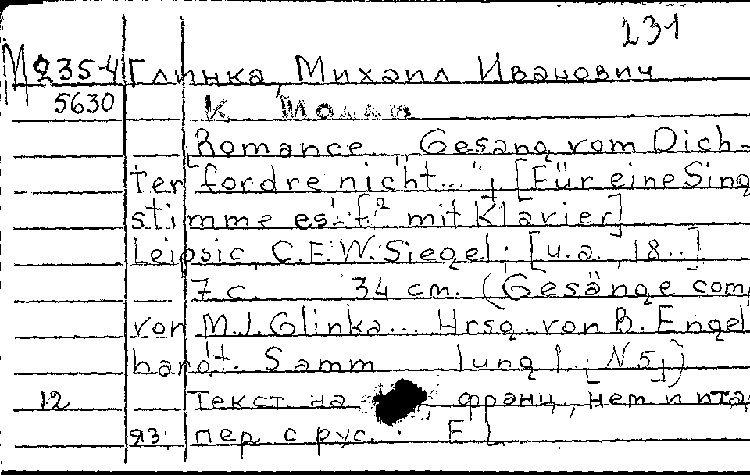 231
М 235-4 Глинка, Михаил Иванович
5630 К Молли
Romance „Gesang vom Dich-
ter fordre nicht..."; [Für eine Sing
stimme es'-f² mit Klavier]
Leipsic, C.F.W. Siegel; [u.a., 18..]
7 с. 34 cm. (Gesänge com
von M.I. Glinka... Hrsg. von B. Engel
hardt. Samm lung I; N 5;)
12 Текст на франц, нем и ита
яз; пер с рус.